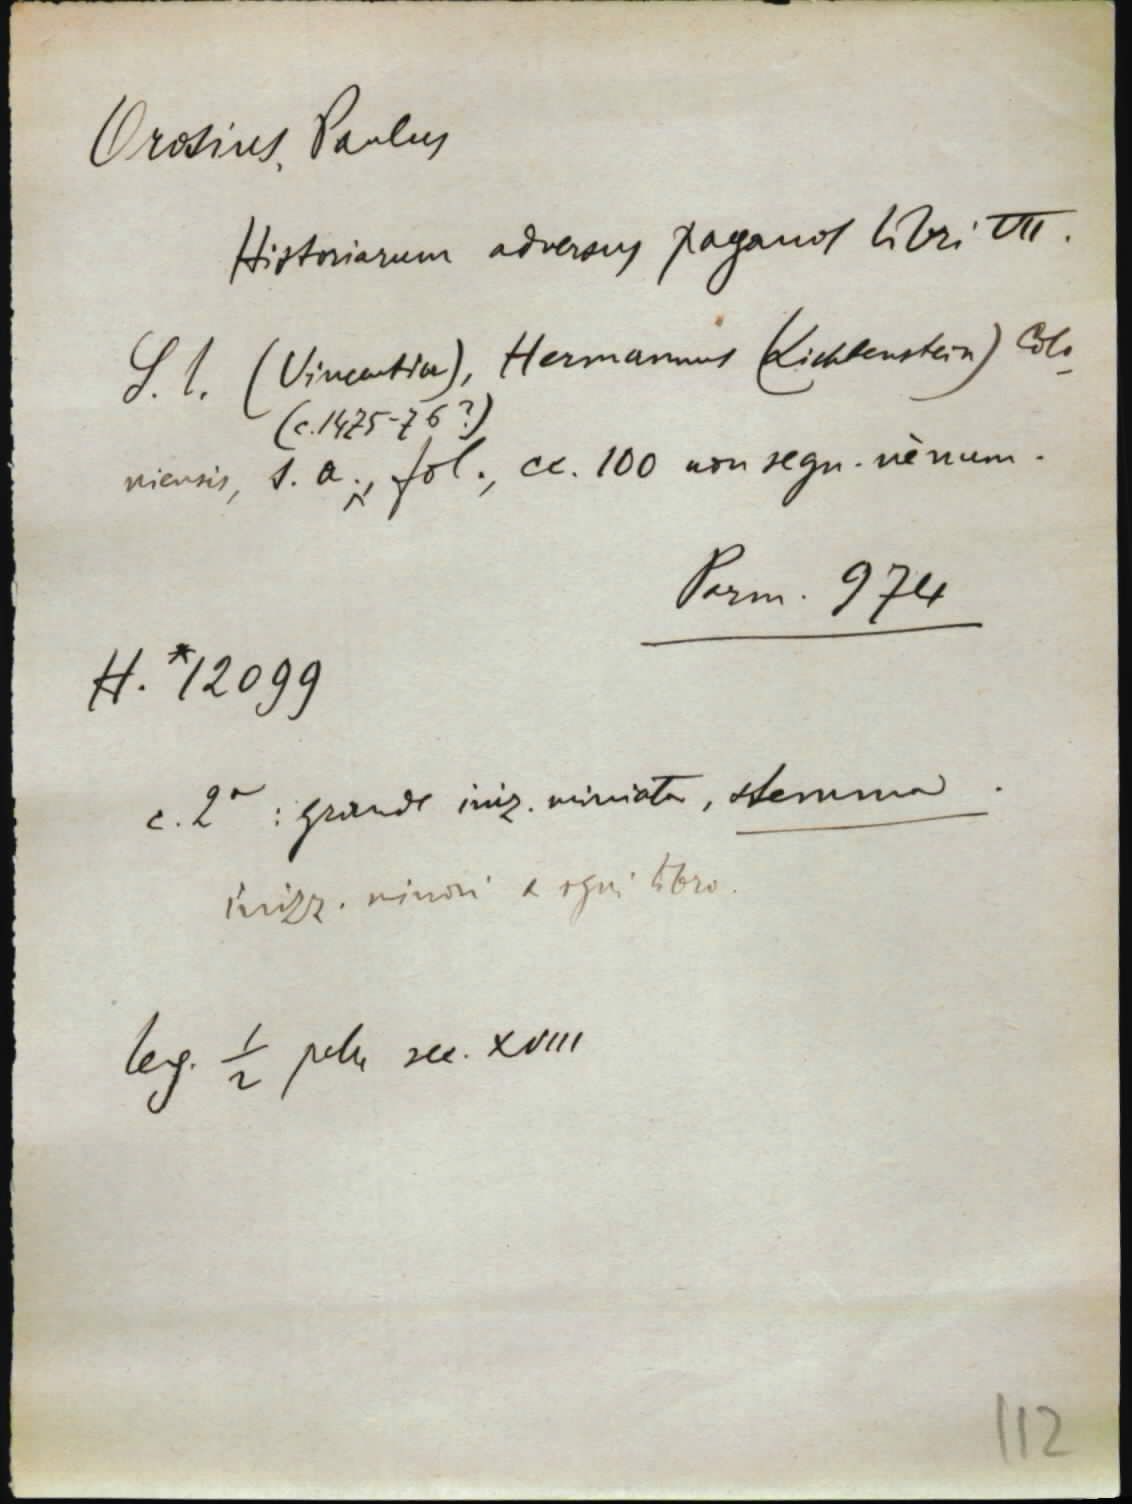 Orosius, Paulus
Historiarum adversus paganos libri VII.
S. l. (Vincentiae), Hermannus (Lichtenstein) Colo-
(c. 1475-76?)
niensis, s. a., fol., cc. 100 non segn. nè num.
Parm. 974
H. *12099
c. 2ª: grande iniz. miniata, stemma.
inizz. minori a ogni libro.
leg. 1/2 pelle sec. XVIII
112